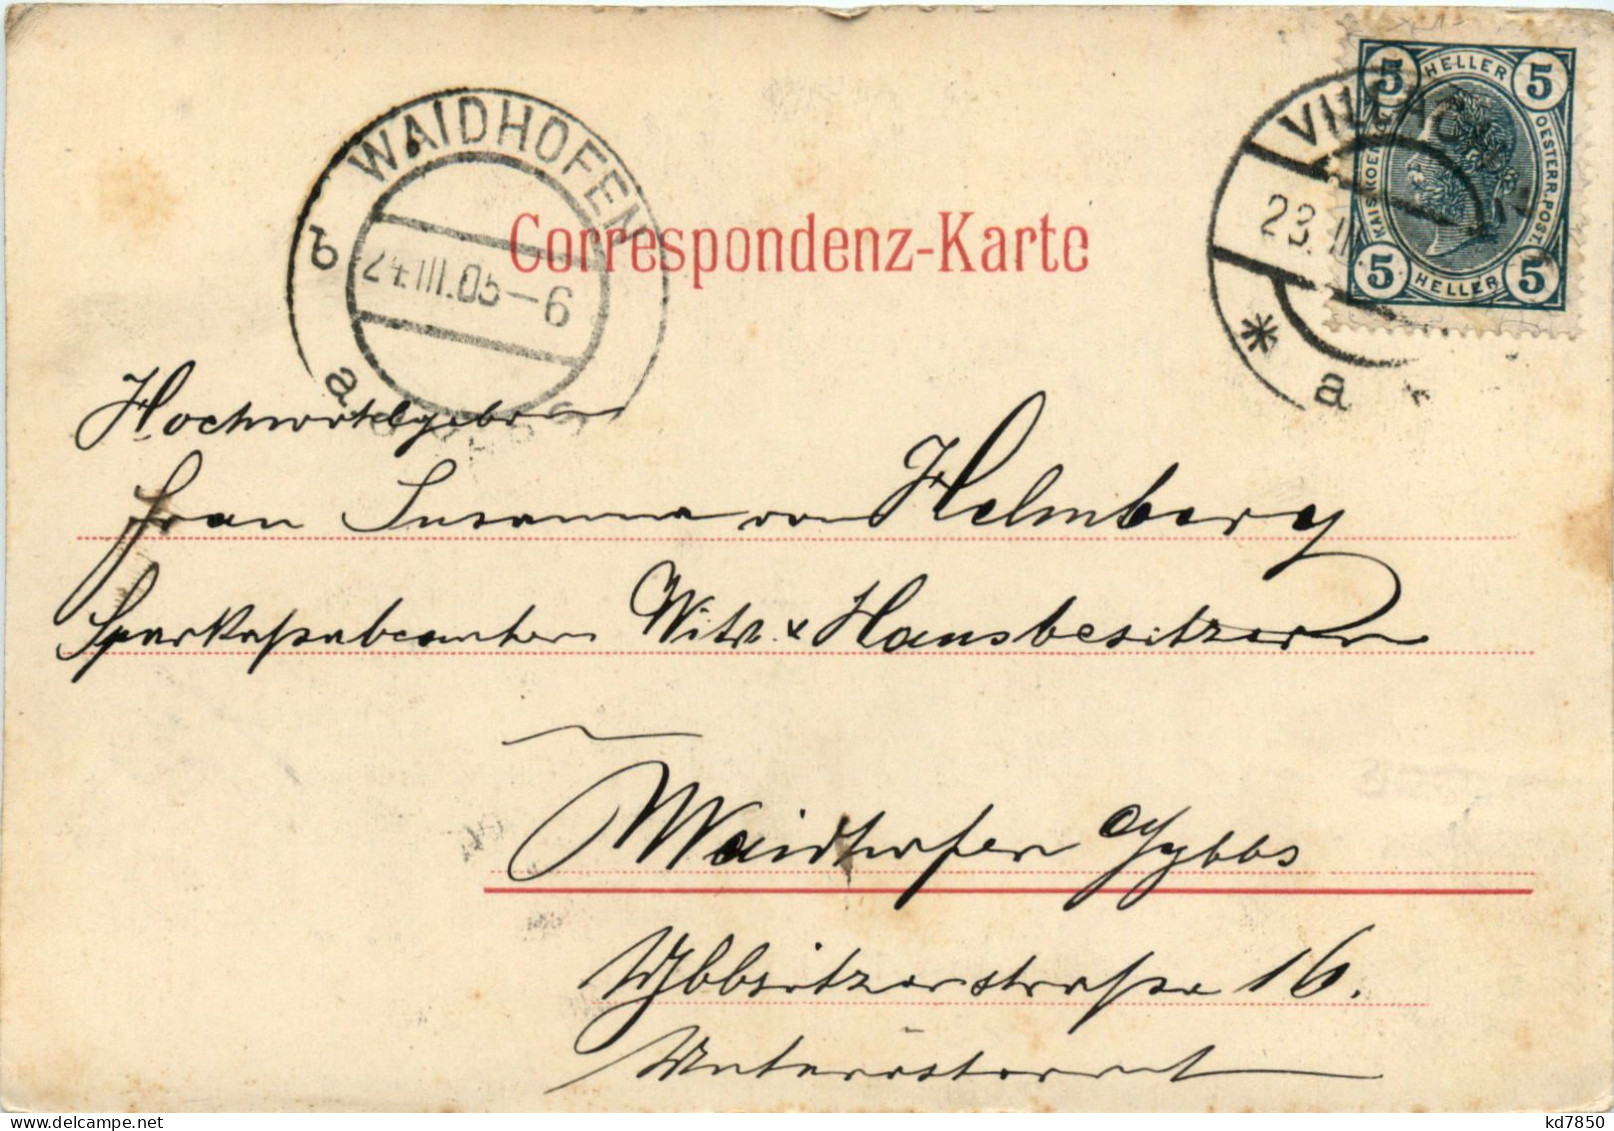 WAIDHOFEN
24.III.05–6
b
a
VILLACH
23.III
* a
5 HELLER 5
OESTERR. POST.
5 HELLER 5
Correspondenz-Karte
Hochwohlgeboren
Frau Susanna von Helmberg
Sparkassabeamtens Witw. & Hausbesitzerin
Waidhofen a/Ybbs
Ybbsitzerstraße 16.
Unterösterreich
www.delcampe.net
kd7850